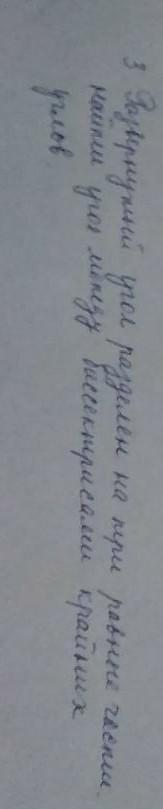 3 Развернутый угол разделен на три равные части.
найти угол между биссектрисами крайних
углов.